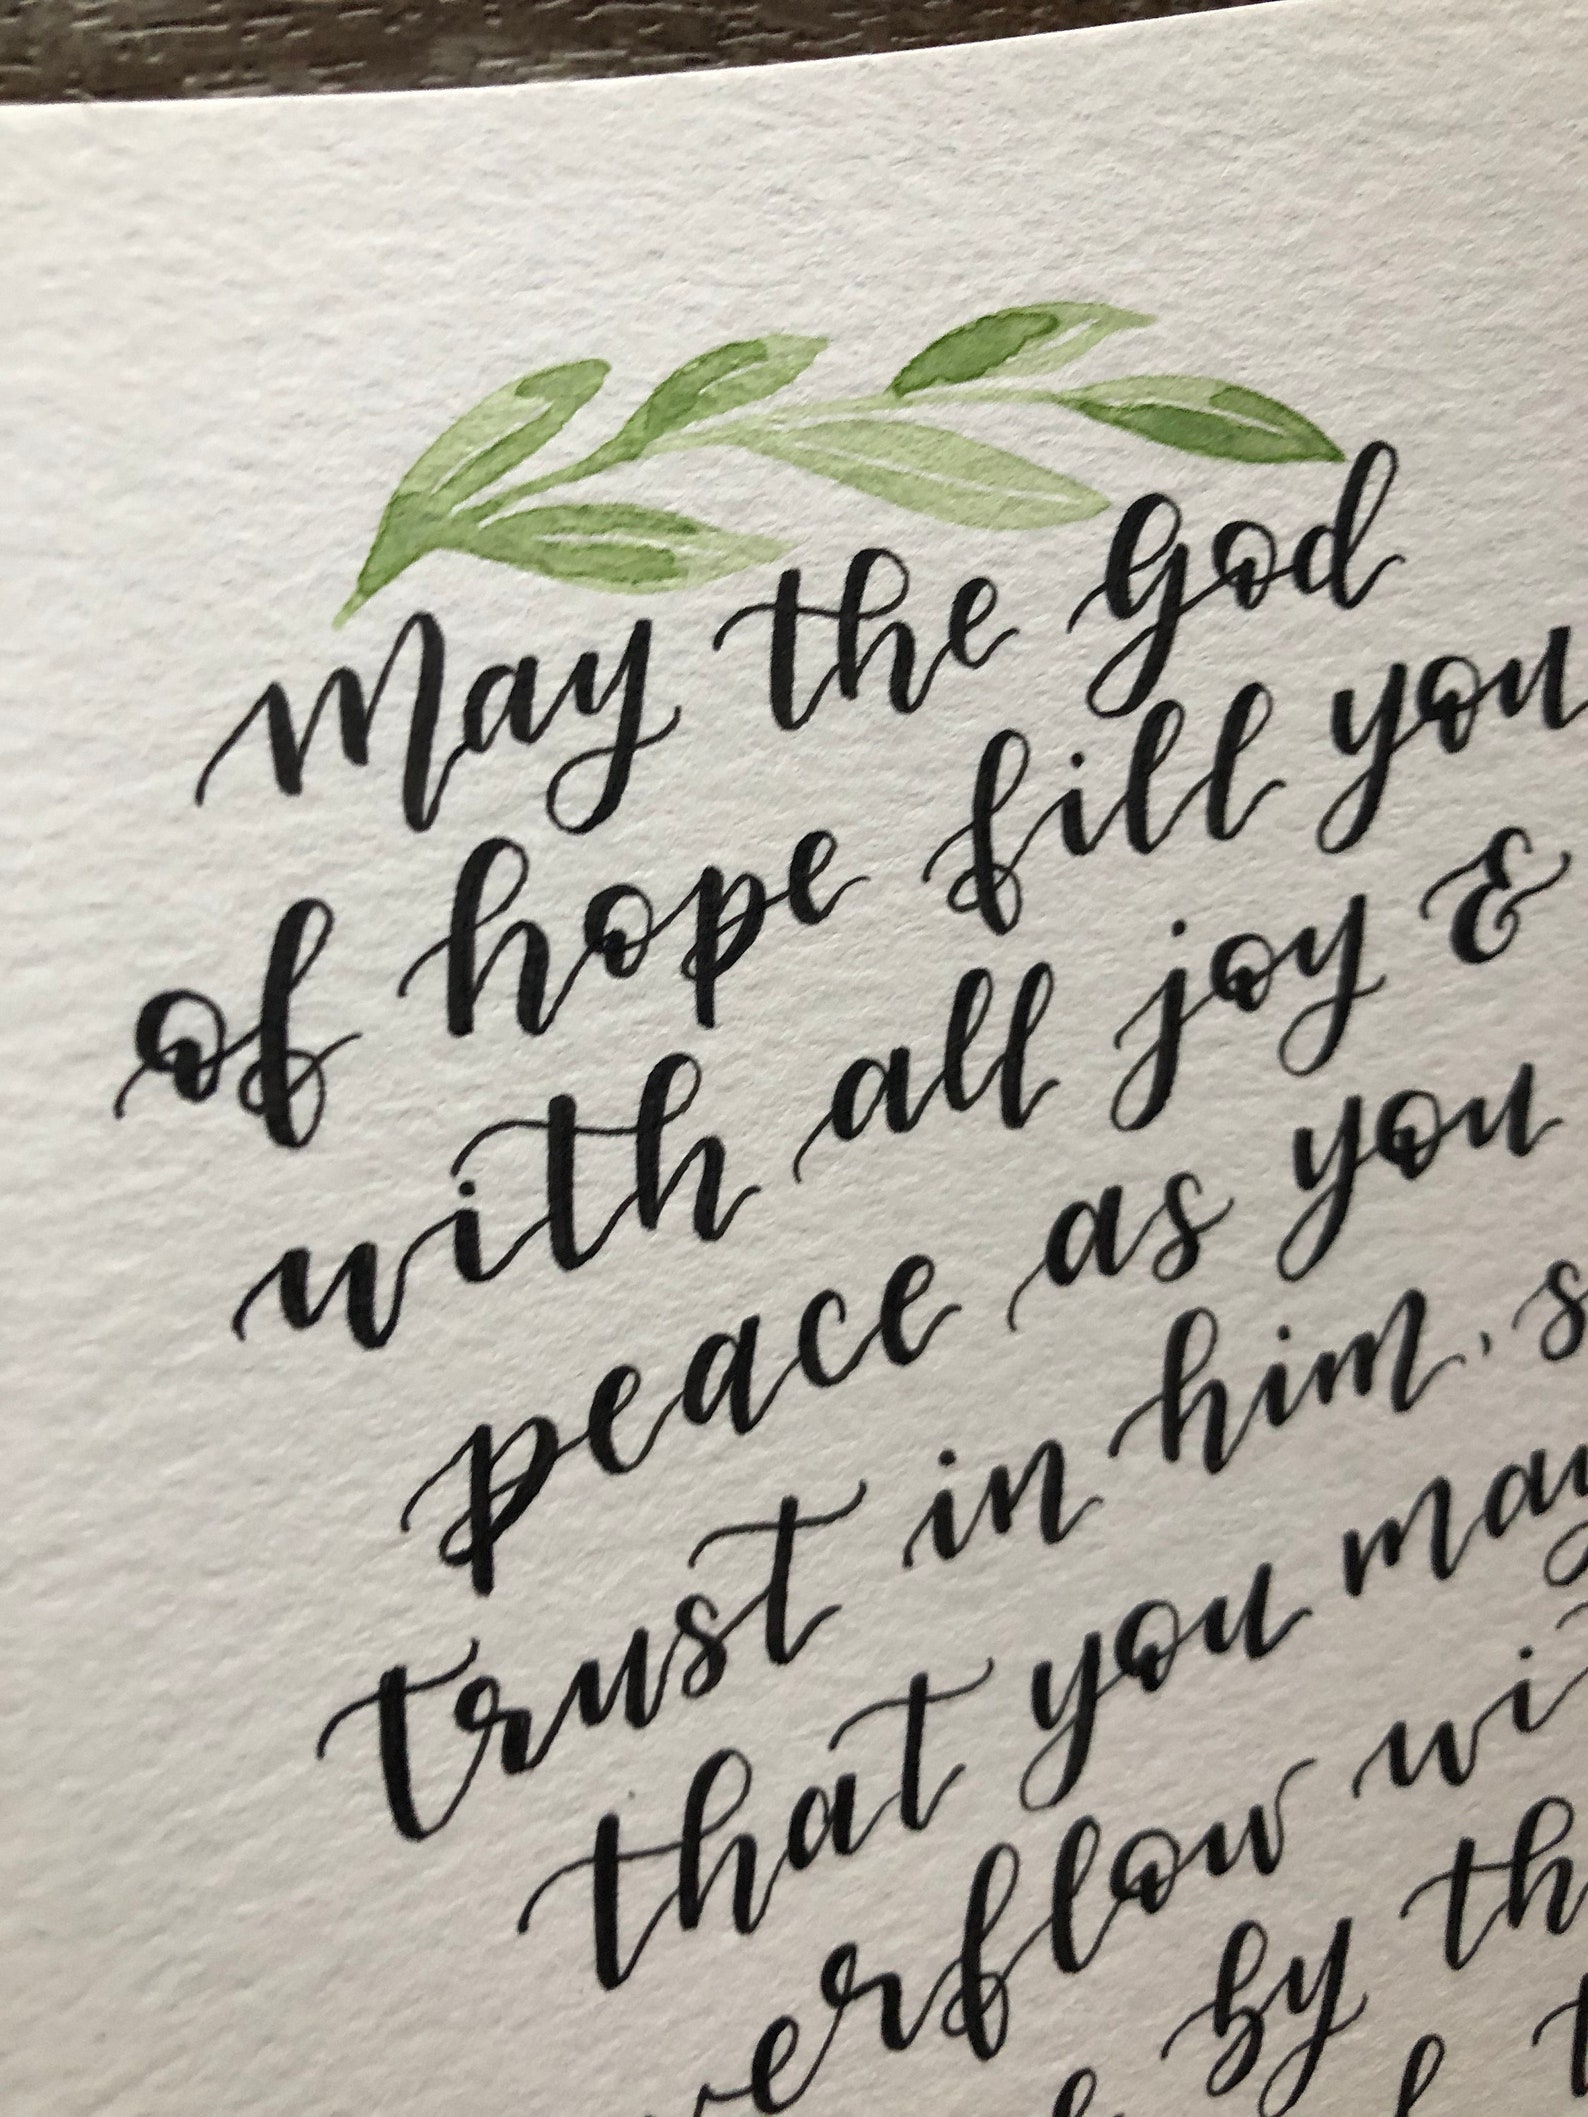 May the God
of hope fill you
with all joy &
peace as you
trust in him, s
that you may
verflow wi
by th